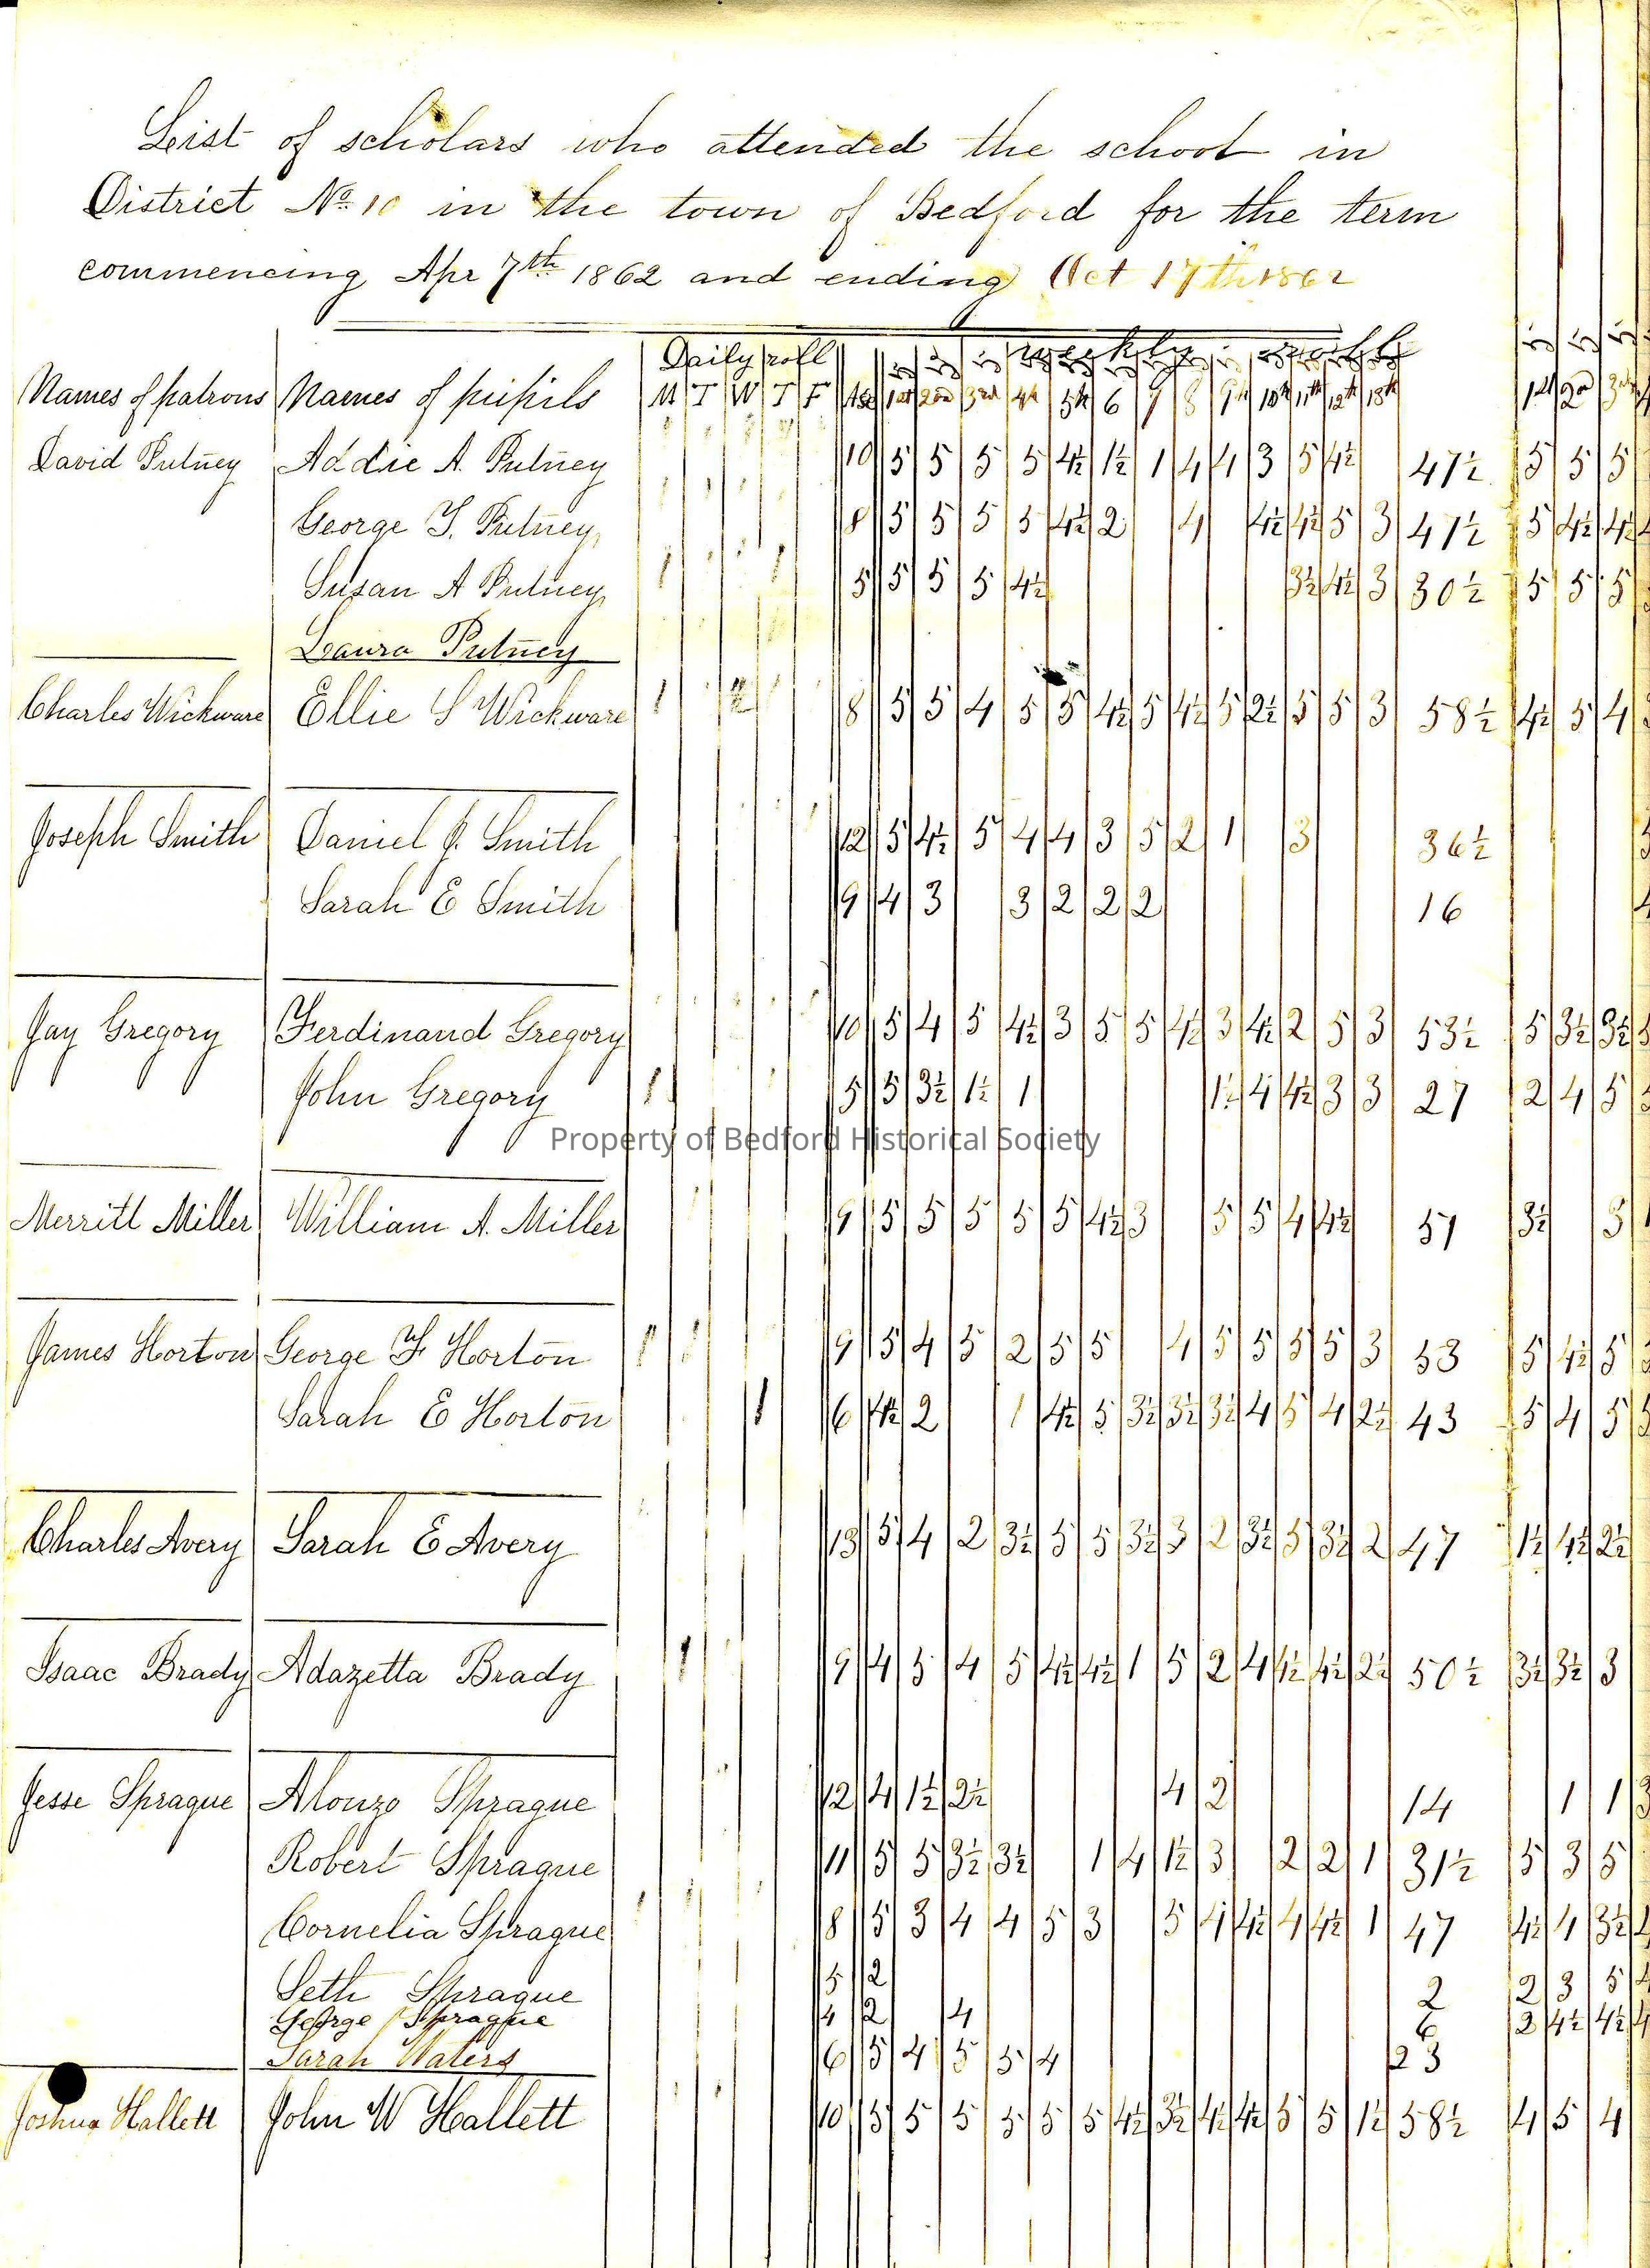 List of scholars who attended the school in
District No. 10 in the town of Bedford for the term
commencing Apr 7th 1862 and ending Oct 17th 1862
Daily roll weekly
Names of patrons Names of pupils M T W T F Age 1st 2nd 3rd 4th 5th 6 7 8 9th 10th 11th 12th 13th 1st 2d 3rd
David Putney Addie A. Putney 10 5 5 5 5 4½ 1½ 1 4 4 3 5 4½ 47½ 5 5 5
George T. Putney 8 5 5 5 5 4½ 2 4 4½ 4½ 5 3 47½ 5 4½ 4½
Susan A Putney 5 5 5 5 4½ 3½ 4½ 3 30½ 5 5 5
Laura Putney
Charles Wickware Ellie S Wickware 8 5 5 4 5 5 4½ 5 4½ 5 2½ 5 5 3 58½ 4½ 5 4
Joseph Smith Daniel J. Smith 12 5 4½ 5 4 4 3 5 2 1 3 36½
Sarah E Smith 9 4 3 3 2 2 2 16
Jay Gregory Ferdinand Gregory 10 5 4 5 4½ 3 5 5 4½ 3 4½ 2 5 3 53½ 5 3½ 3½
John Gregory 5 5 3½ 1½ 1 1½ 4 4½ 3 3 27 2 4 5
Property of Bedford Historical Society
Merritt Miller William A. Miller 9 5 5 5 5 5 4½ 3 5 5 4 4½ 51 3½ 3
James Horton George F Horton 9 5 4 5 2 5 5 4 5 5 5 5 3 53 5 4½ 5
Sarah E Horton 6 4½ 2 1 4½ 5 3½ 3½ 3½ 4 5 4 2½ 43 5 4 5
Charles Avery Sarah E Avery 13 5 4 2 3½ 5 5 3½ 3 2 3½ 5 3½ 2 47 1½ 4½ 2½
Isaac Brady Adazetta Brady 9 4 5 4 5 4½ 4½ 1 5 2 4 4½ 4½ 2½ 50½ 3½ 3½ 3
Jesse Sprague Alonzo Sprague 12 4 1½ 2½ 4 2 14 1 1
Robert Sprague 11 5 5 3½ 3½ 1 4 1½ 3 2 2 1 31½ 5 3 5
Cornelia Sprague 8 5 3 4 4 5 3 5 4 4½ 4 4½ 1 47 4½ 4 3½
Seth Sprague 5 2 2 2 3 5
George Sprague 4 2 4 6 2 4½ 4½
Sarah Waters 6 5 4 5 5 4 23
Joshua Hallett John W Hallett 10 5 5 5 5 5 5 4½ 3½ 4½ 4½ 5 5 1½ 58½ 4 5 4